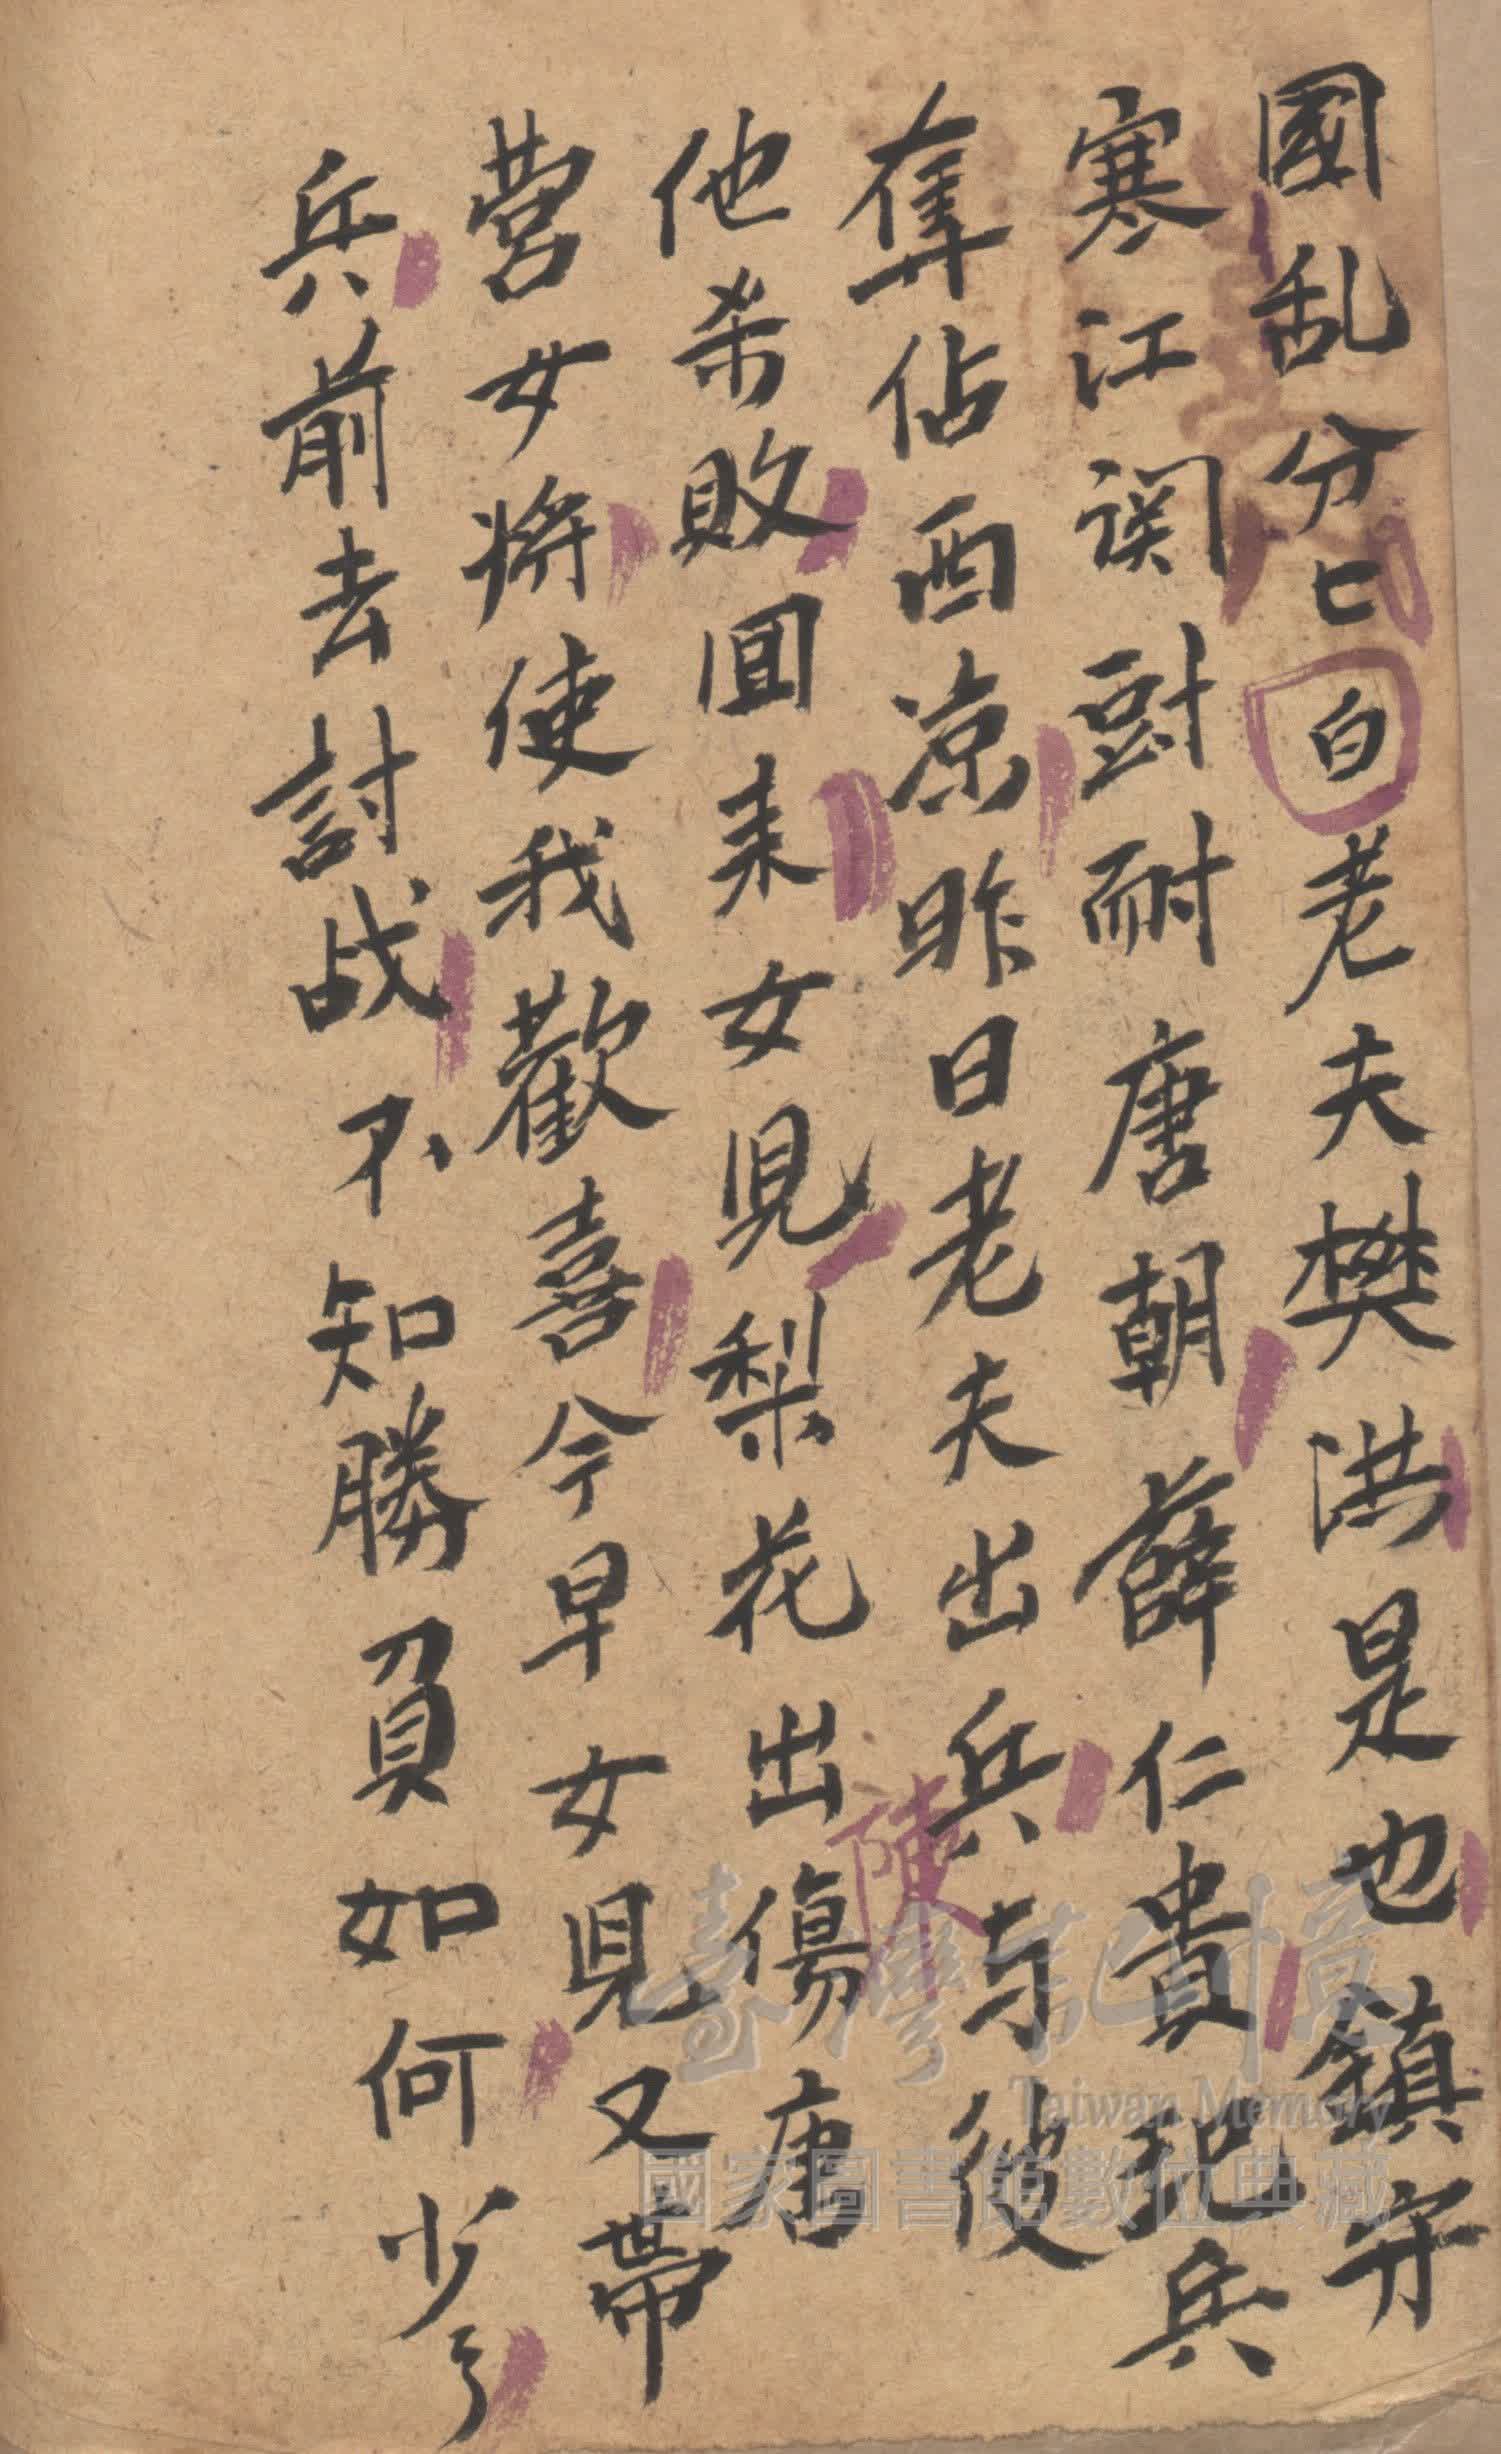 國乱分匕白老夫樊洪是也鎮守
寒江関尌耐唐朝薛仁貴起兵
奪佔西凉昨日老夫出兵与彼
陳
他杀敗回来女児梨花出傷唐
营女将使我歡喜今早女児又帶
兵前去討战不知勝負如何
臺灣記憶
Taiwan Memory
國家圖書館數位典藏